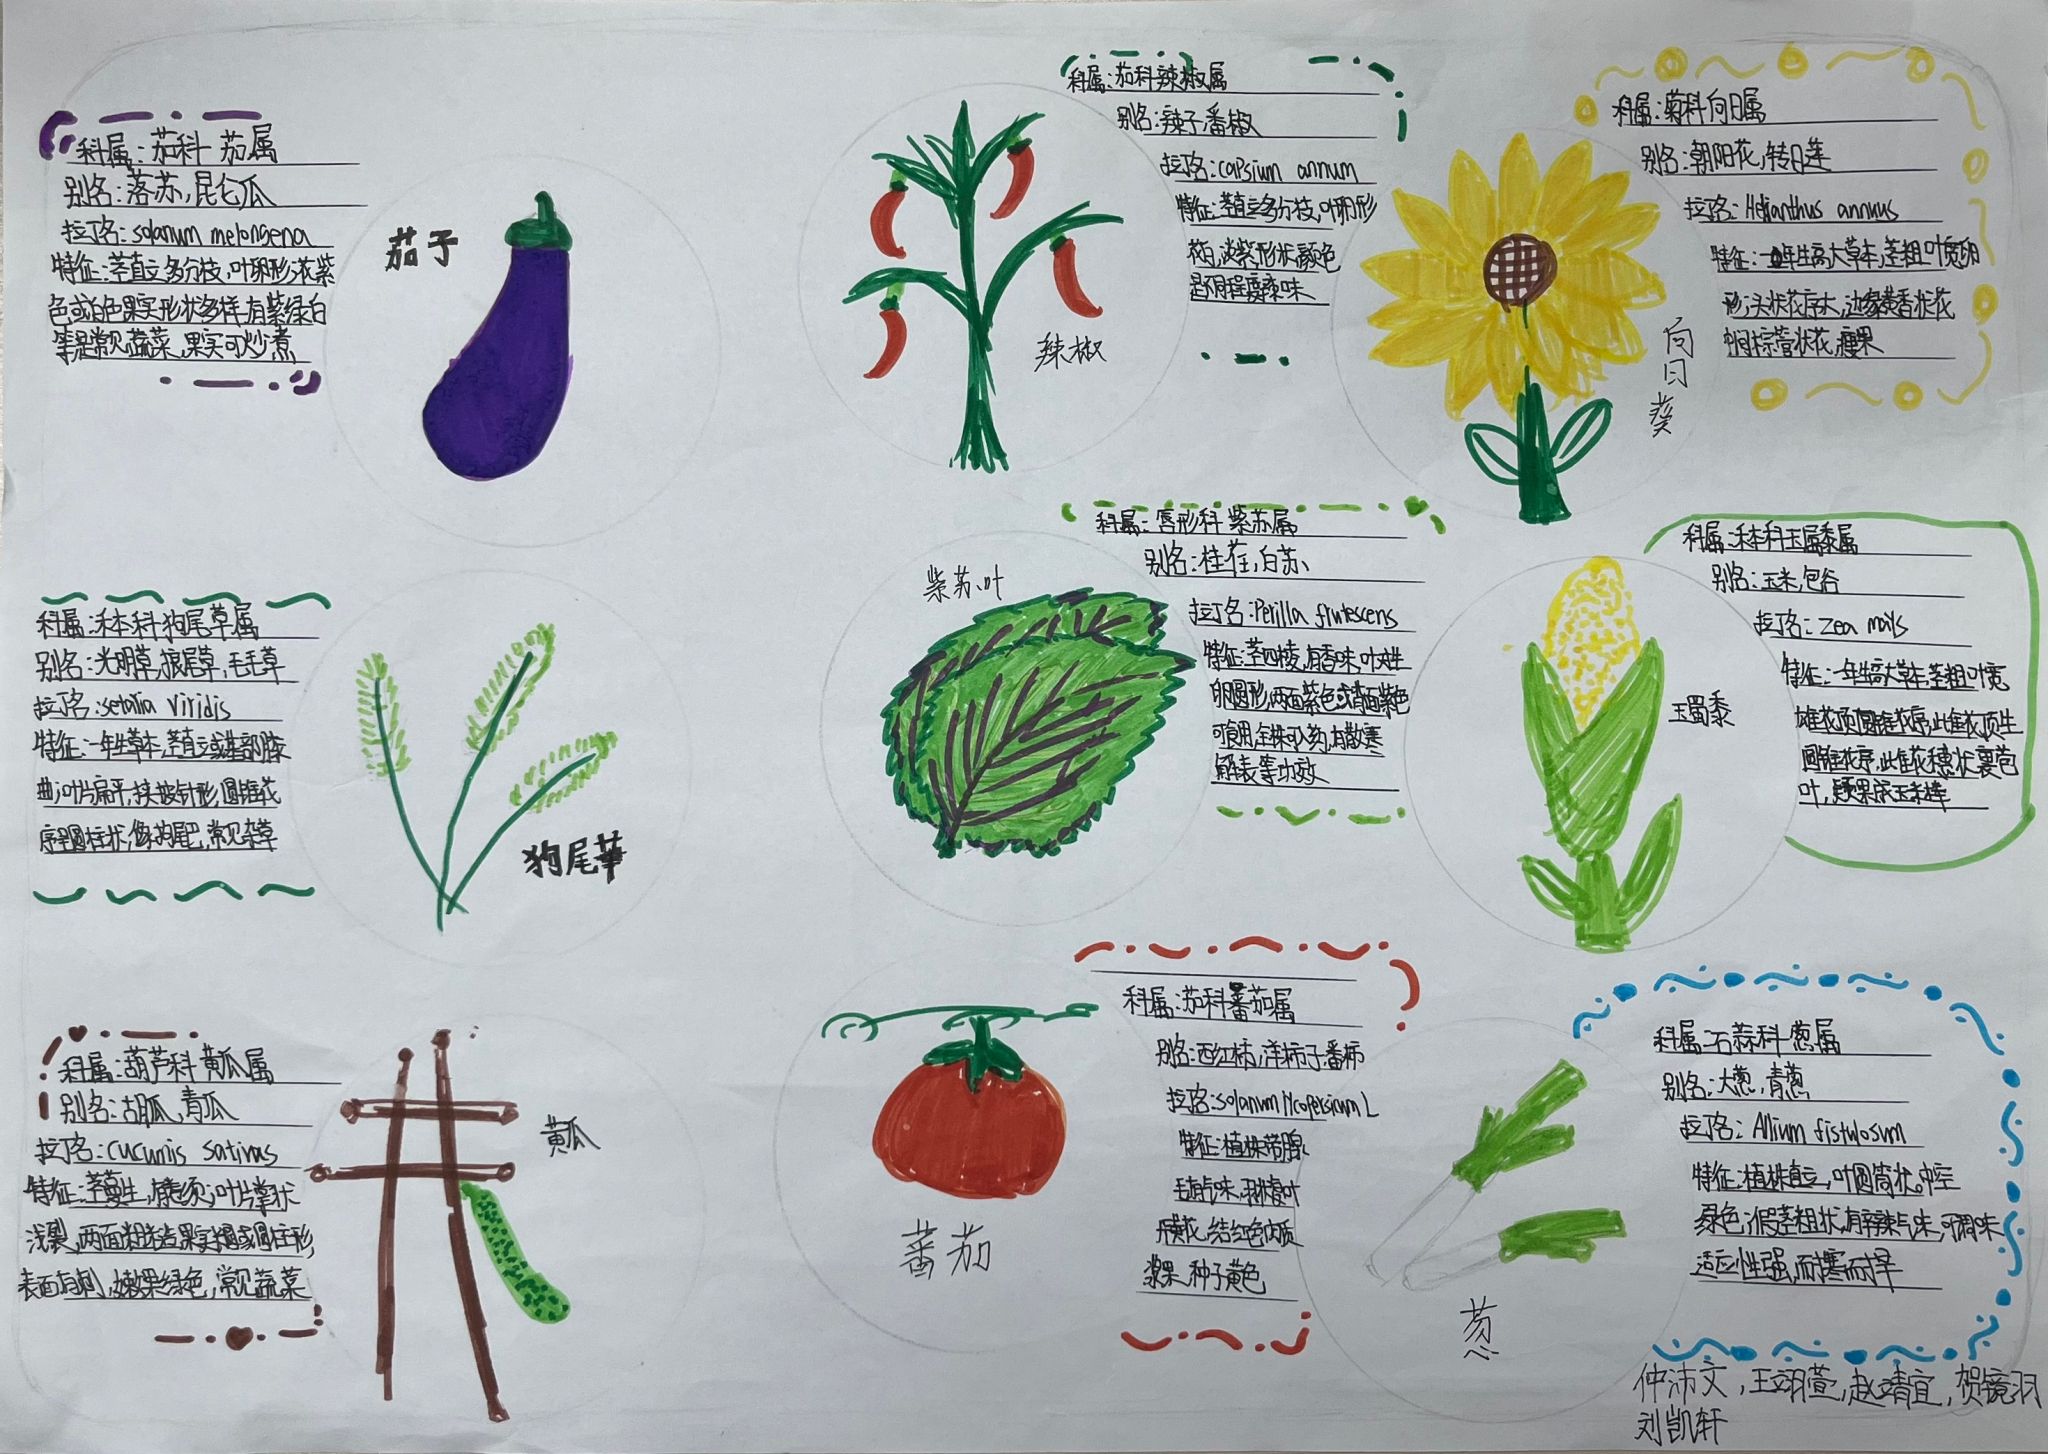 科属:茄科 茄属
别名:落苏,昆仑瓜
拉丁名:solanum melongena
特征:茎直立多分枝,叶卵形,花紫
色或白色果实形状多样,有紫绿白
等是常见蔬菜,果实可炒煮
茄子
科属:茄科辣椒属
别名:辣子,番椒
拉丁名:capsium annum
特征:茎直立多分枝,叶卵形
花白,淡紫,形状颜色
辣味
辣椒
科属:菊科向日属
别名:朝阳花,转日莲
拉丁名:Helianthus annuus
特征:一年生高大草本,茎粗叶宽卵
形,头状花序大,边缘黄舌状花
中间棕管状花,瘦果
向日葵
科属:禾本科狗尾草属
别名:光明草,狼尾草,毛毛草
拉丁名:setalia viridis
特征:一年生草本,茎直立或基部膝
曲,叶片扁平,狭披针形,圆锥花
序呈圆柱状,像狗尾巴,常见杂草
狗尾草
科属:唇形科 紫苏属
别名:桂荏,白苏
拉丁名:Perilla frutescens
特征:茎四棱,有香味,叶对生
卵圆形,两面紫色或背面紫色
可食用,全株可入药,有散寒
解表等功效
紫苏叶
科属:禾本科玉属黍属
别名:玉米,包谷
拉丁名:zea mais
特征:一年生高大草本,茎粗叶宽
雄花顶圆锥花序,此雌花,顶生
圆锥花序,此雌花穗状裹苞
叶,颖果成玉米棒
玉蜀黍
科属:葫芦科 黄瓜属
别名:胡瓜,青瓜
拉丁名:cucumis sativus
特征:茎蔓生,有卷须,叶片掌状
浅裂,两面粗糙,果实椭圆或圆柱形
表面有刺,嫩果绿色,常见蔬菜
黄瓜
科属:茄科蕃茄属
别名:西红柿,洋柿子,番柿
拉丁名:solanum lycopersicum L
特征:植株带腺
毛有气味,羽状复叶
开黄花,结红色肉质
浆果,种子黄色
蕃茄
科属:石蒜科葱属
别名:大葱,青葱
拉丁名:Allium fistulosum
特征:植株直立,叶圆筒状,中空
绿色,假茎粗状,有辛辣气味,可调味
适应性强,耐寒耐旱
葱
仲沛文,王翊萱,赵靖宜,贺镜羽
刘凯轩